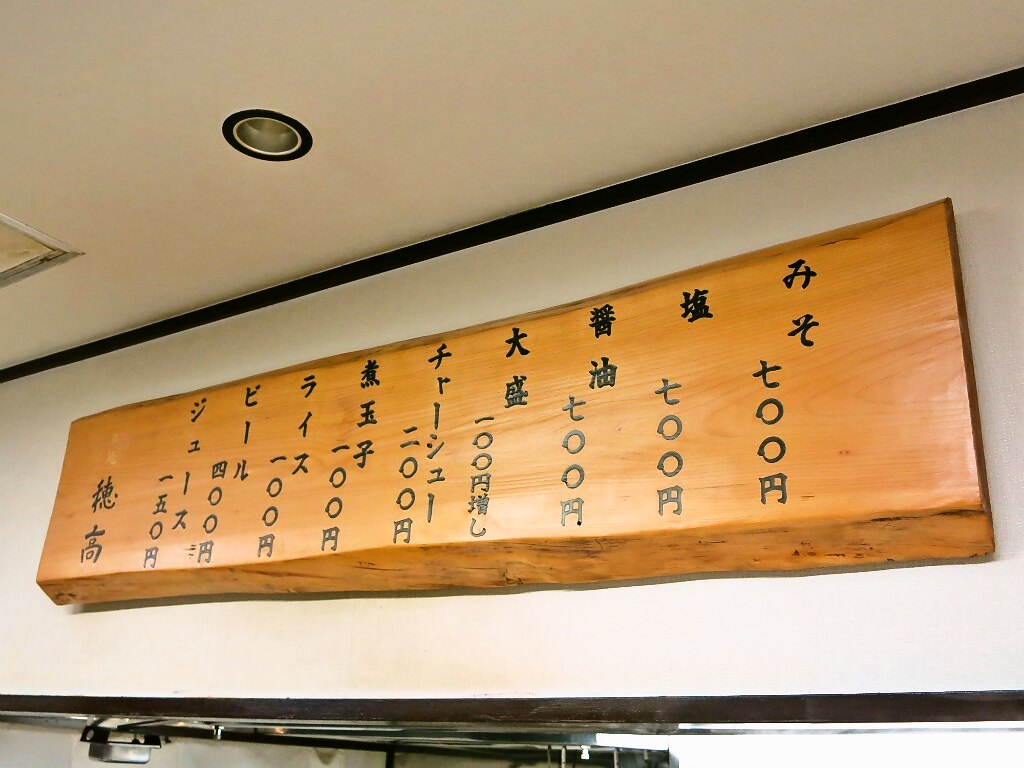 みそ 七〇〇円
塩 七〇〇円
醤油 七〇〇円
大盛 一〇〇円増し
チャーシュー 二〇〇円
煮玉子 一〇〇円
ライス 一〇〇円
ビール 四〇〇円
ジュース 一五〇円
穂高